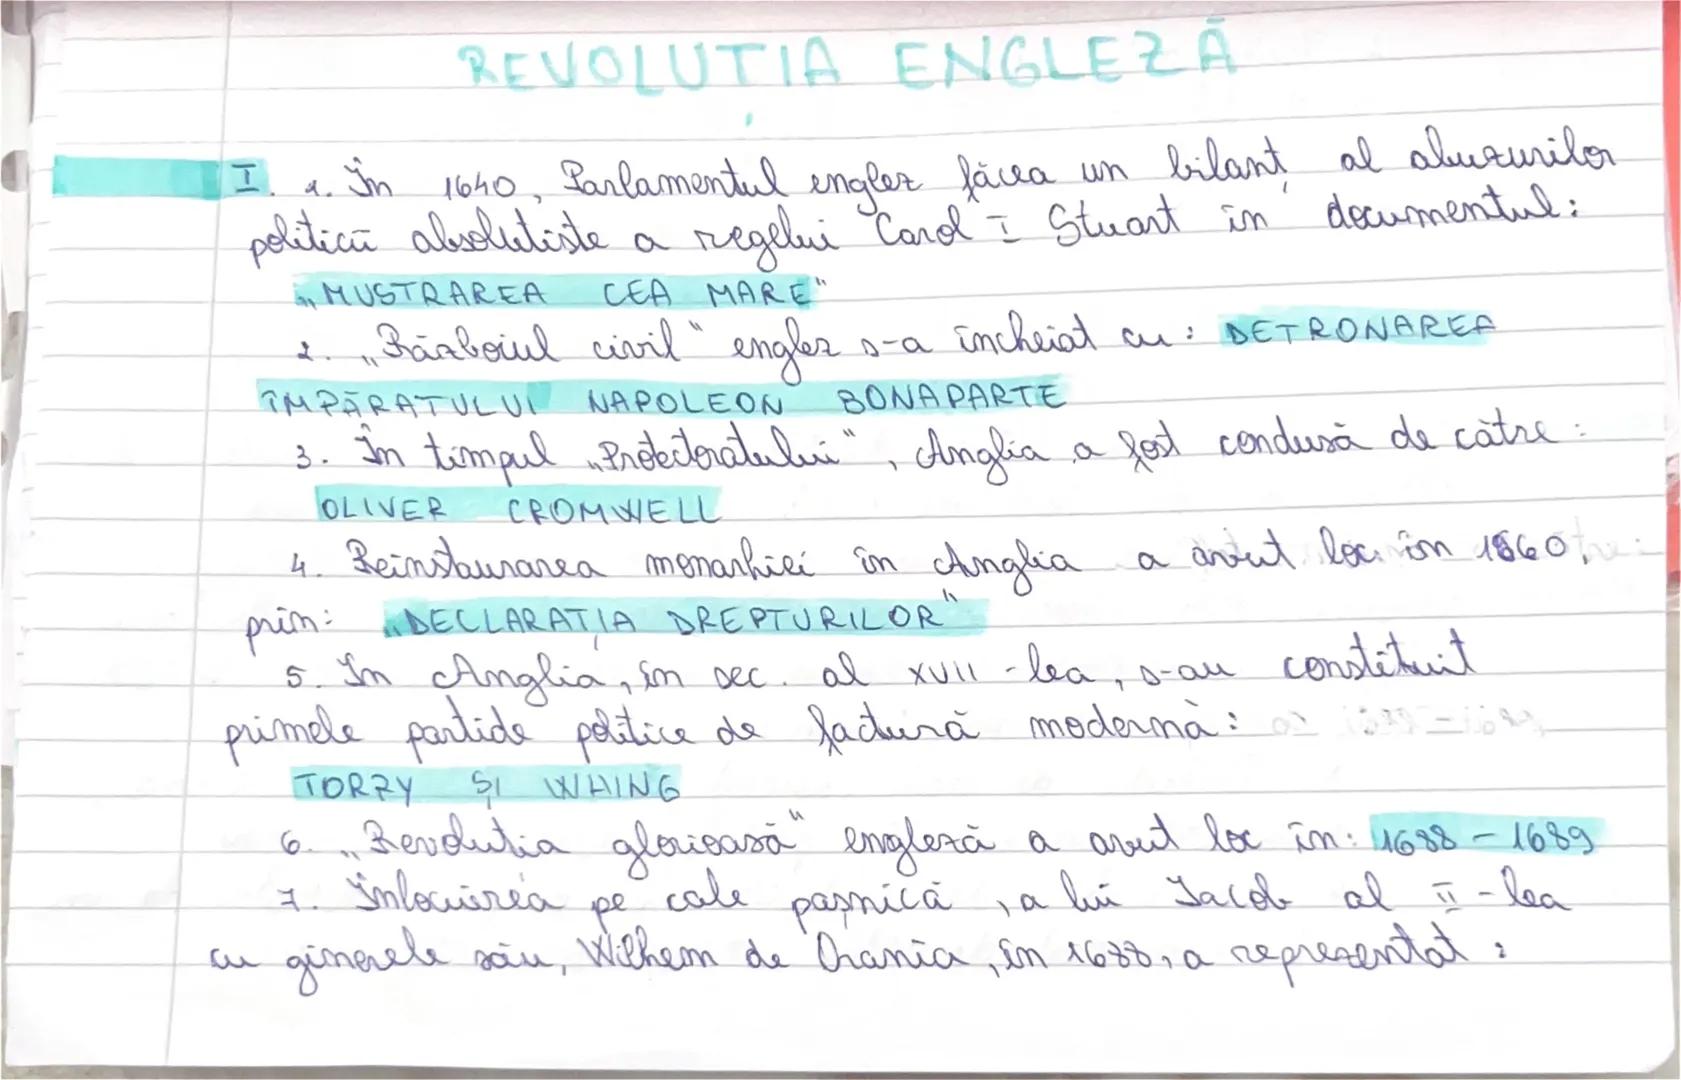 REVOLUȚIA ENGLEZĂ
I. 1. În 1640, Parlamentul englez făcea un bilanț al abuzurilor
politicii absolutiste a regelui Carol I Stuart în documentul:
„MUSTRAREA CEA MARE"
2. „Războiul civil" englez s-a încheiat cu: DETRONAREA
ÎMPĂRATULUI NAPOLEON BONAPARTE
3. În timpul „Protectoratului", Anglia a fost condusă de către:
OLIVER CROMWELL
4. Reinstaurarea monarhiei în Anglia a avut loc în 1660,
prin: „DECLARAȚIA DREPTURILOR"
5. În Anglia, în sec. al XVII-lea, s-au constituit
primele partide politice de factură modernă:
TORRY ȘI WHING
6. „Revolutia glorioasă" engleză a avut loc în: 1688-1689
7. Înlocuirea pe cale pașnică, a lui Jacob al II-lea
cu ginerele său, Wilhem de Orania, în 1688, a reprezentat: